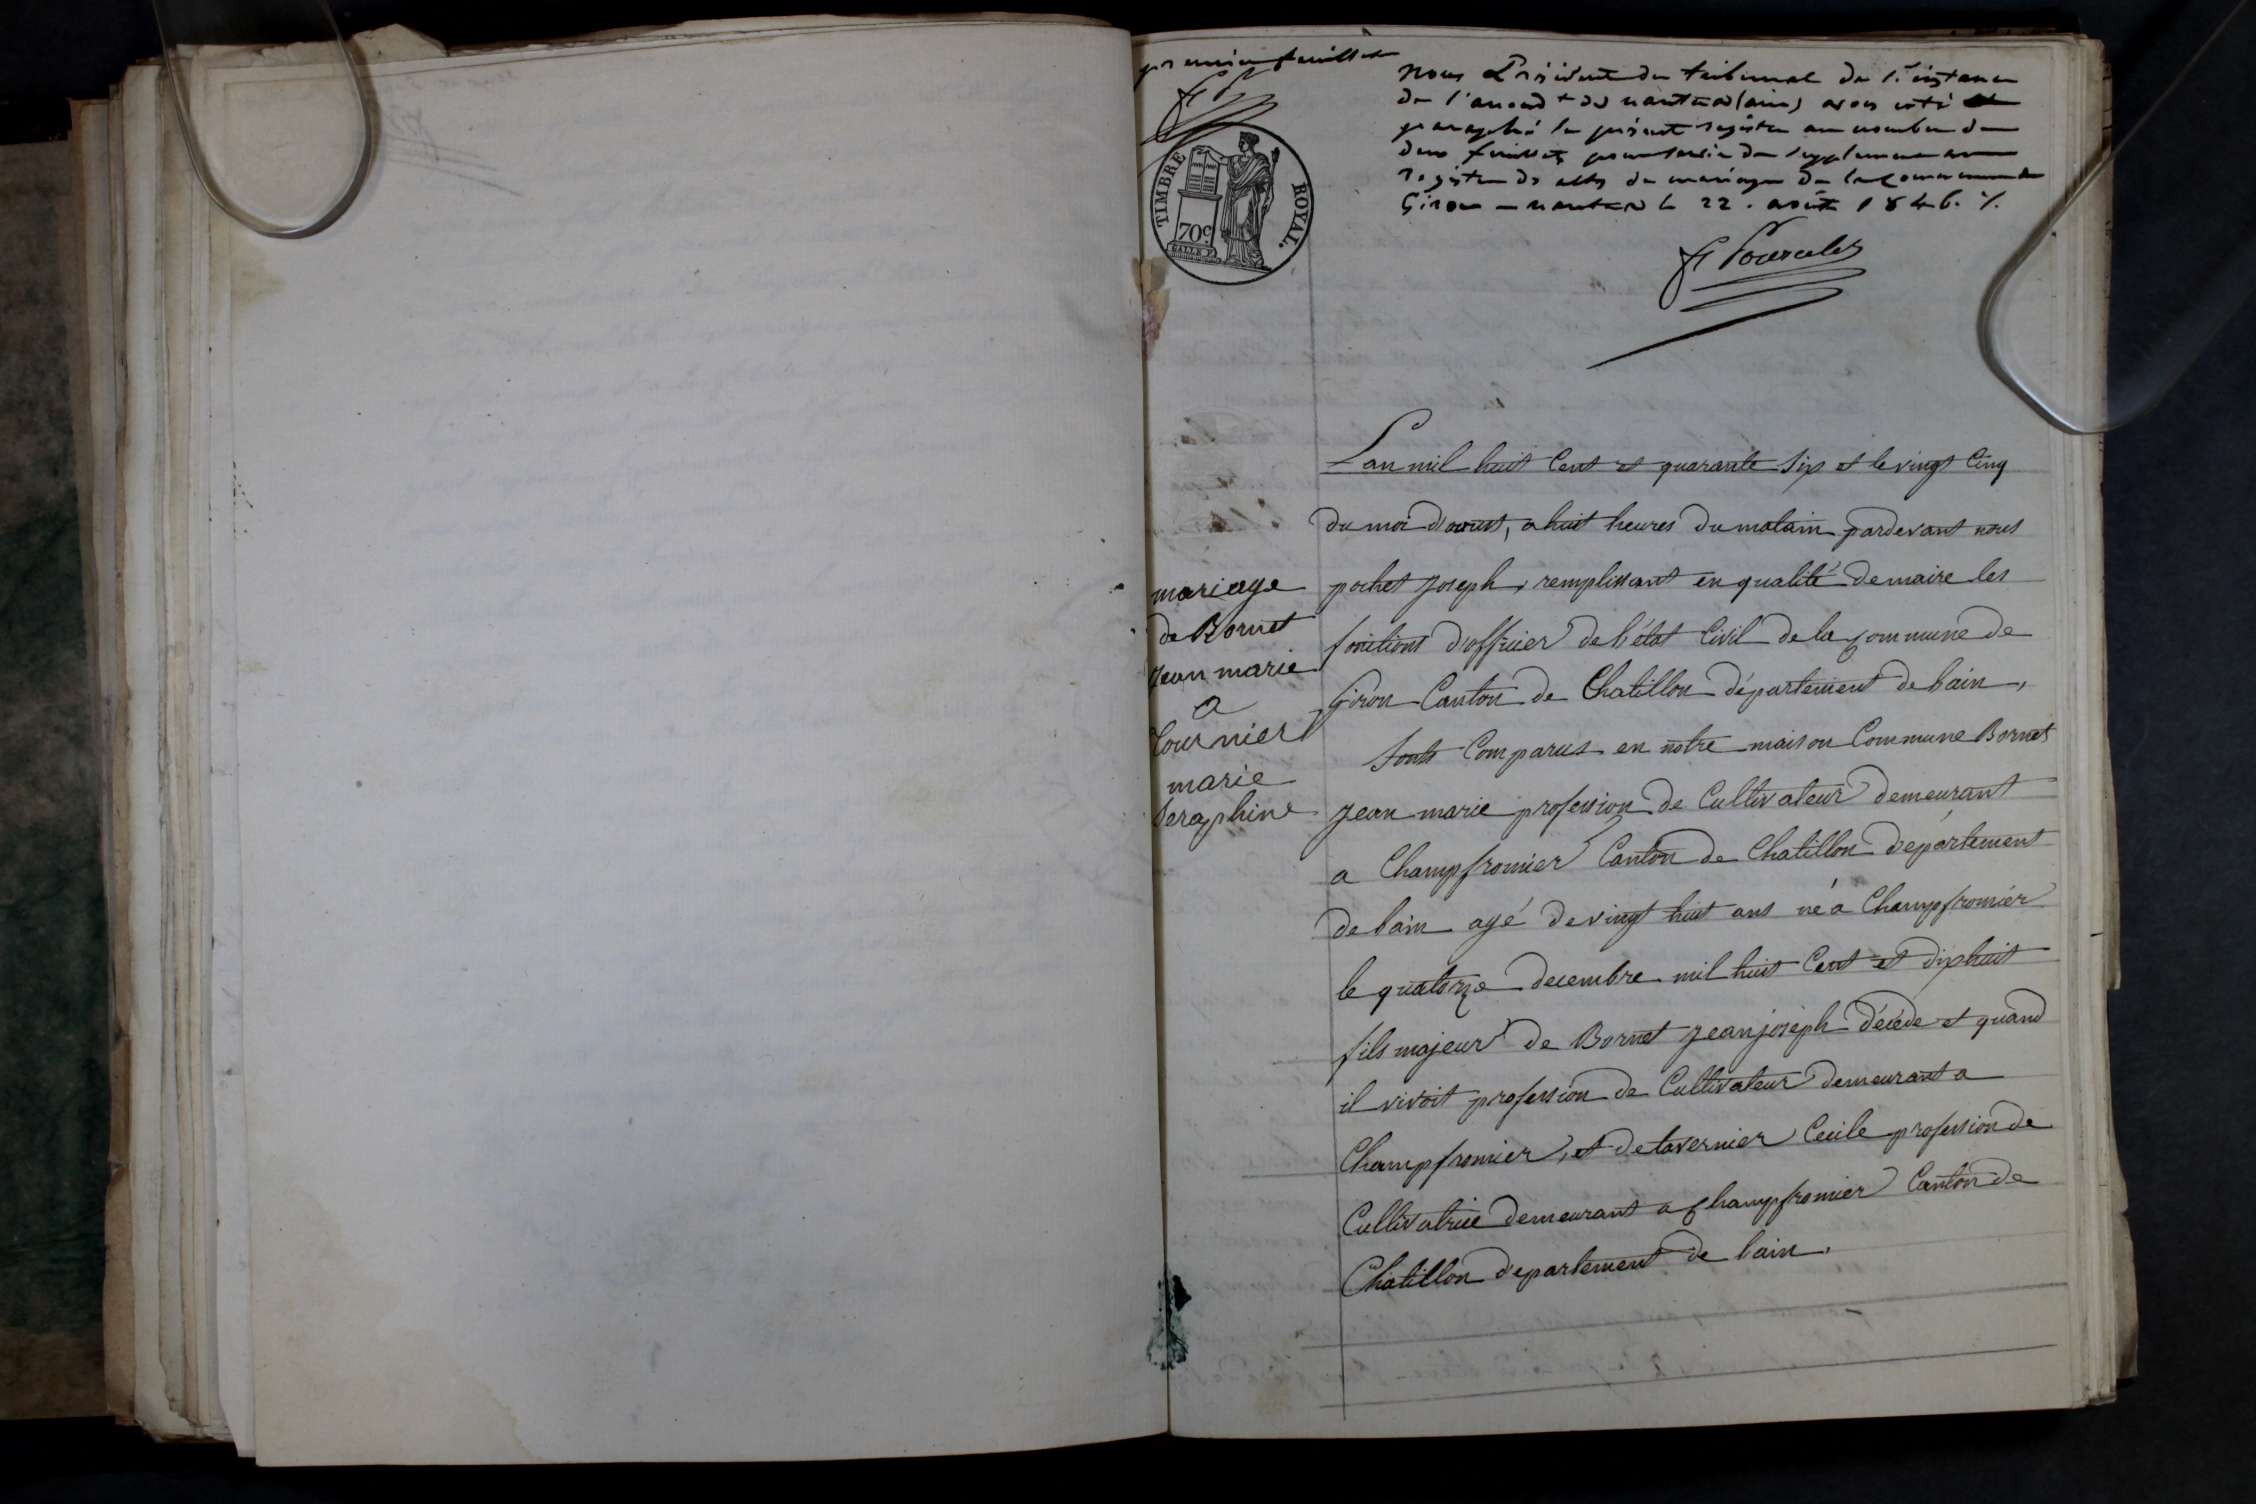 premier feuillet
nous Président du tribunal de 1.re instance
de l'arrond.t de nantua (ain) avons coté et
paraphé le présent registre au nombre de
deux feuillets pour servir de supplement au
registre des actes de mariage de la Commune de
Giron – nantua le 22. août 1846. /.
TIMBRE ROYAL.
70c
Lan mil huit Cent et quarante Six et le vingt Cinq
du moi d'aoust, a huit heures du matain pardevant nous
pochet joseph, remplissant en qualité de maire les
fonctions d'officier de l'état Civil de la Commune de
Giron Canton de Chatillon département de lain,
Sonts Comparus en nôtre maison Commune Bornet
jean marie profession de Cultivateur demeurant
a Champfromier Canton de Chatillon département
de lain agé de vingt huit ans né a Champfromier
le quatorze decembre mil huit Cent et dixhuit
fils majeur de Bornet jean joseph décede et quand
il vivoit profession de Cultivateur demeurant a
Champfromier, et de tavernier Cecile profession de
Cultivatrice demeurant a Champfromier Canton de
Chatillon departement de lain.
mariage
de Bornet
jean marie
a
tournier
marie
Seraphine